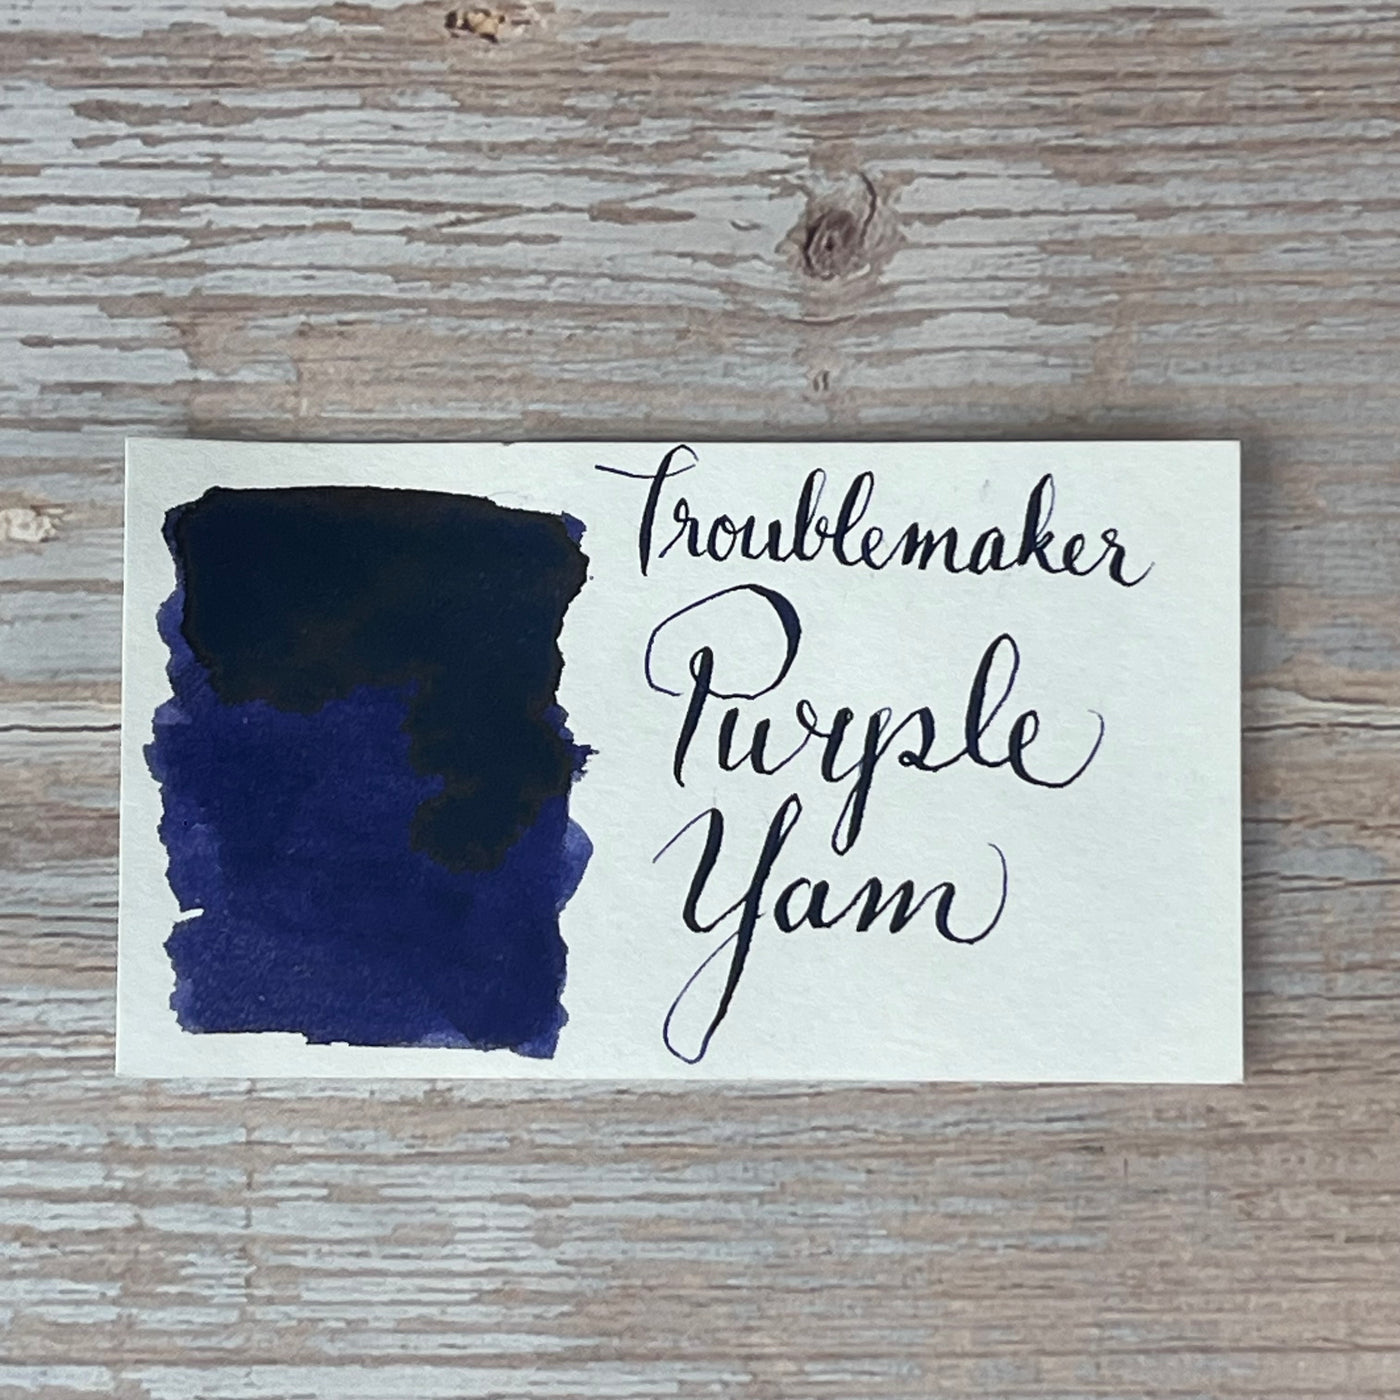 Troublemaker
Purple
Yam